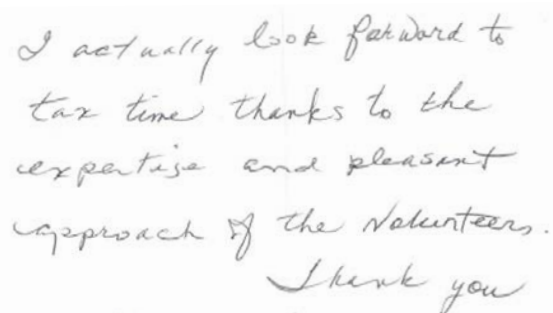 I actually look forward to
tax time thanks to the
expertise and pleasant
approach of the Volunteers.
Thank you